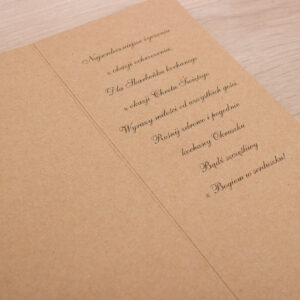 Najserdeczniejsze życzenia
z okazji
Dla Skarbeńka kochanego
z okazji Chrztu Świętego
Wyrazy miłości od wszystkich gości
Rośnij zdrowo i pogodnie
kochany Okruszku
Bądź szczęśliwy
z Bogiem w serduszku!